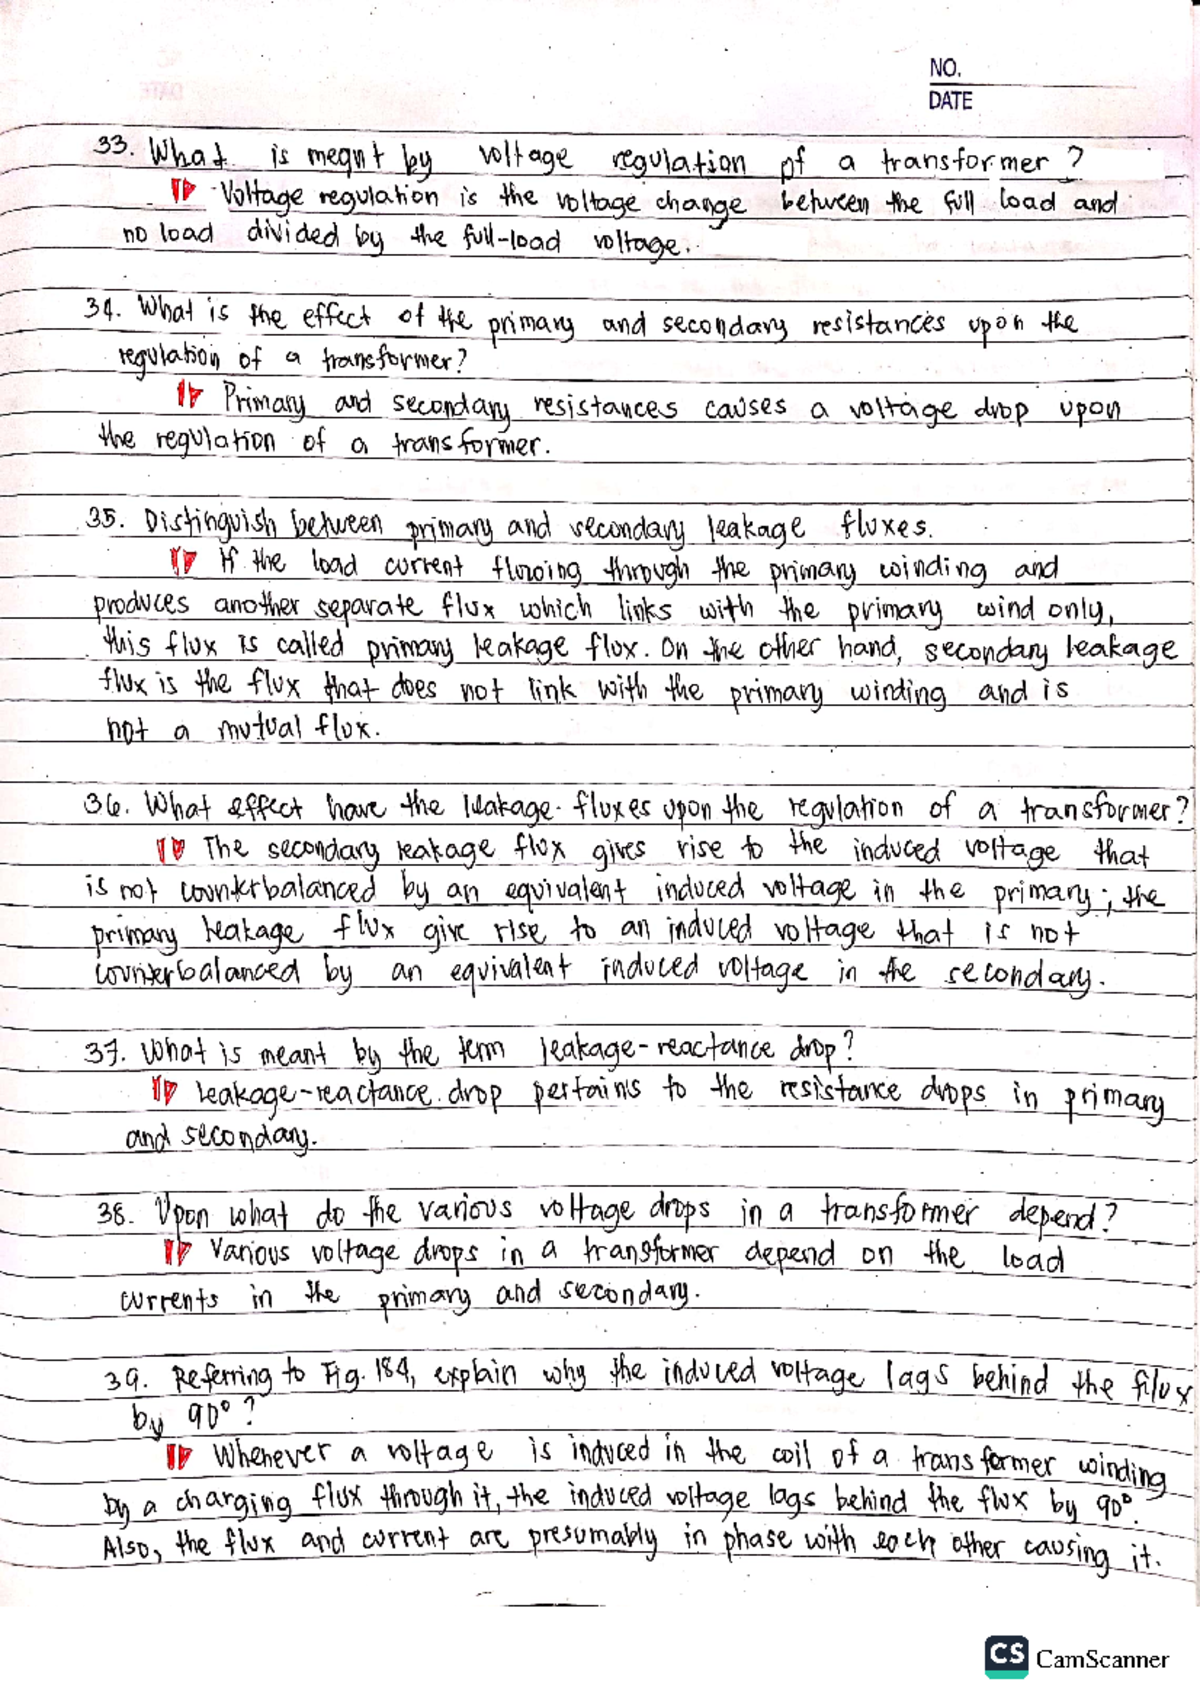 NO.
DATE
33. What is meant by voltage regulation of a transformer?
Voltage regulation is the voltage change between the full load and
no load divided by the full-load voltage.
34. What is the effect of the primary and secondary resistances upon the
regulation of a transformer?
Primary and secondary resistances causes a voltage drop upon
the regulation of a transformer.
35. Distinguish between primary and secondary leakage fluxes.
If the load current flowing through the primary winding and
produces another separate flux which links with the primary wind only,
this flux is called primary leakage flux. On the other hand, secondary leakage
flux is the flux that does not link with the primary winding and is
not a mutual flux.
36. What effect have the leakage fluxes upon the regulation of a transformer?
The secondary leakage flux gives rise to the induced voltage that
is not counterbalanced by an equivalent induced voltage in the primary; the
primary leakage flux give rise to an induced voltage that is not
counterbalanced by an equivalent induced voltage in the secondary.
37. What is meant by the term leakage-reactance drop?
Leakage-reactance drop pertains to the resistance drops in primary
and secondary.
38. Upon what do the various voltage drops in a transformer depend?
Various voltage drops in a transformer depend on the load
currents in the primary and secondary.
39. Referring to Fig. 184, explain why the induced voltage lags behind the flux
by 90°?
Whenever a voltage is induced in the coil of a transformer winding
by a charging flux through it, the induced voltage lags behind the flux by 90°.
Also, the flux and current are presumably in phase with each other causing it.
CS CamScanner